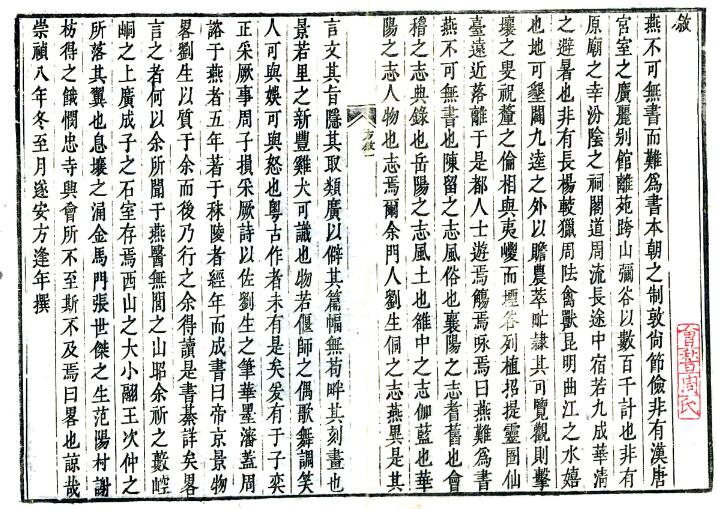 敘
燕不可無書而難為書本朝之制敦尚節儉非有漢唐
宮室之廣麗別館離苑跨山彌谷以數百千計也非有
原廟之幸汾陰之祠閣道周流長途中宿若九成華清
之避暑也非有長楊較獵周阹禽獸昆明曲江之水嬉
也地可墾闢九逵之外以贍農萃甿隷其可覽觀則擊
壤之叟祝釐之倫相與夷巙而壇各列植招提靈圄仙
臺遠近落離于是都人士遊焉觴焉咏焉曰燕難為書
燕不可無書也陳留之志風俗也襄陽之志耆舊也會
稽之志典錄也岳陽之志風土也雒中之志伽藍也華
陽之志人物也志焉爾余門人劉生侗之志燕異是其
方敘一
言文其旨隱其取類廣以僻其篇幅無苟畔其刻畫也
景若里之新豐雞犬可識也物若偃師之偶歌舞調笑
人可與娛可與怒也粵古作者未有是矣爰有于子奕
正采厥事周子損采厥詩以佐劉生之筆華墨瀋蓋周
諮于燕者五年著于秣陵者經年而成書曰帝京景物
畧劉生以質于余而後乃行之余得讀是書綦詳矣畧
言之者何以余所聞于燕醫無閭之山昭余祈之藪崆
峒之上廣成子之石室存焉西山之大小翮王次仲之
所落其翼也息壤之涌金馬門張世傑之生范陽村謝
枋得之餓憫忠寺與會所不至斯不及焉曰畧也諒哉
崇禎八年冬至月遂安方逢年撰
會稽周氏